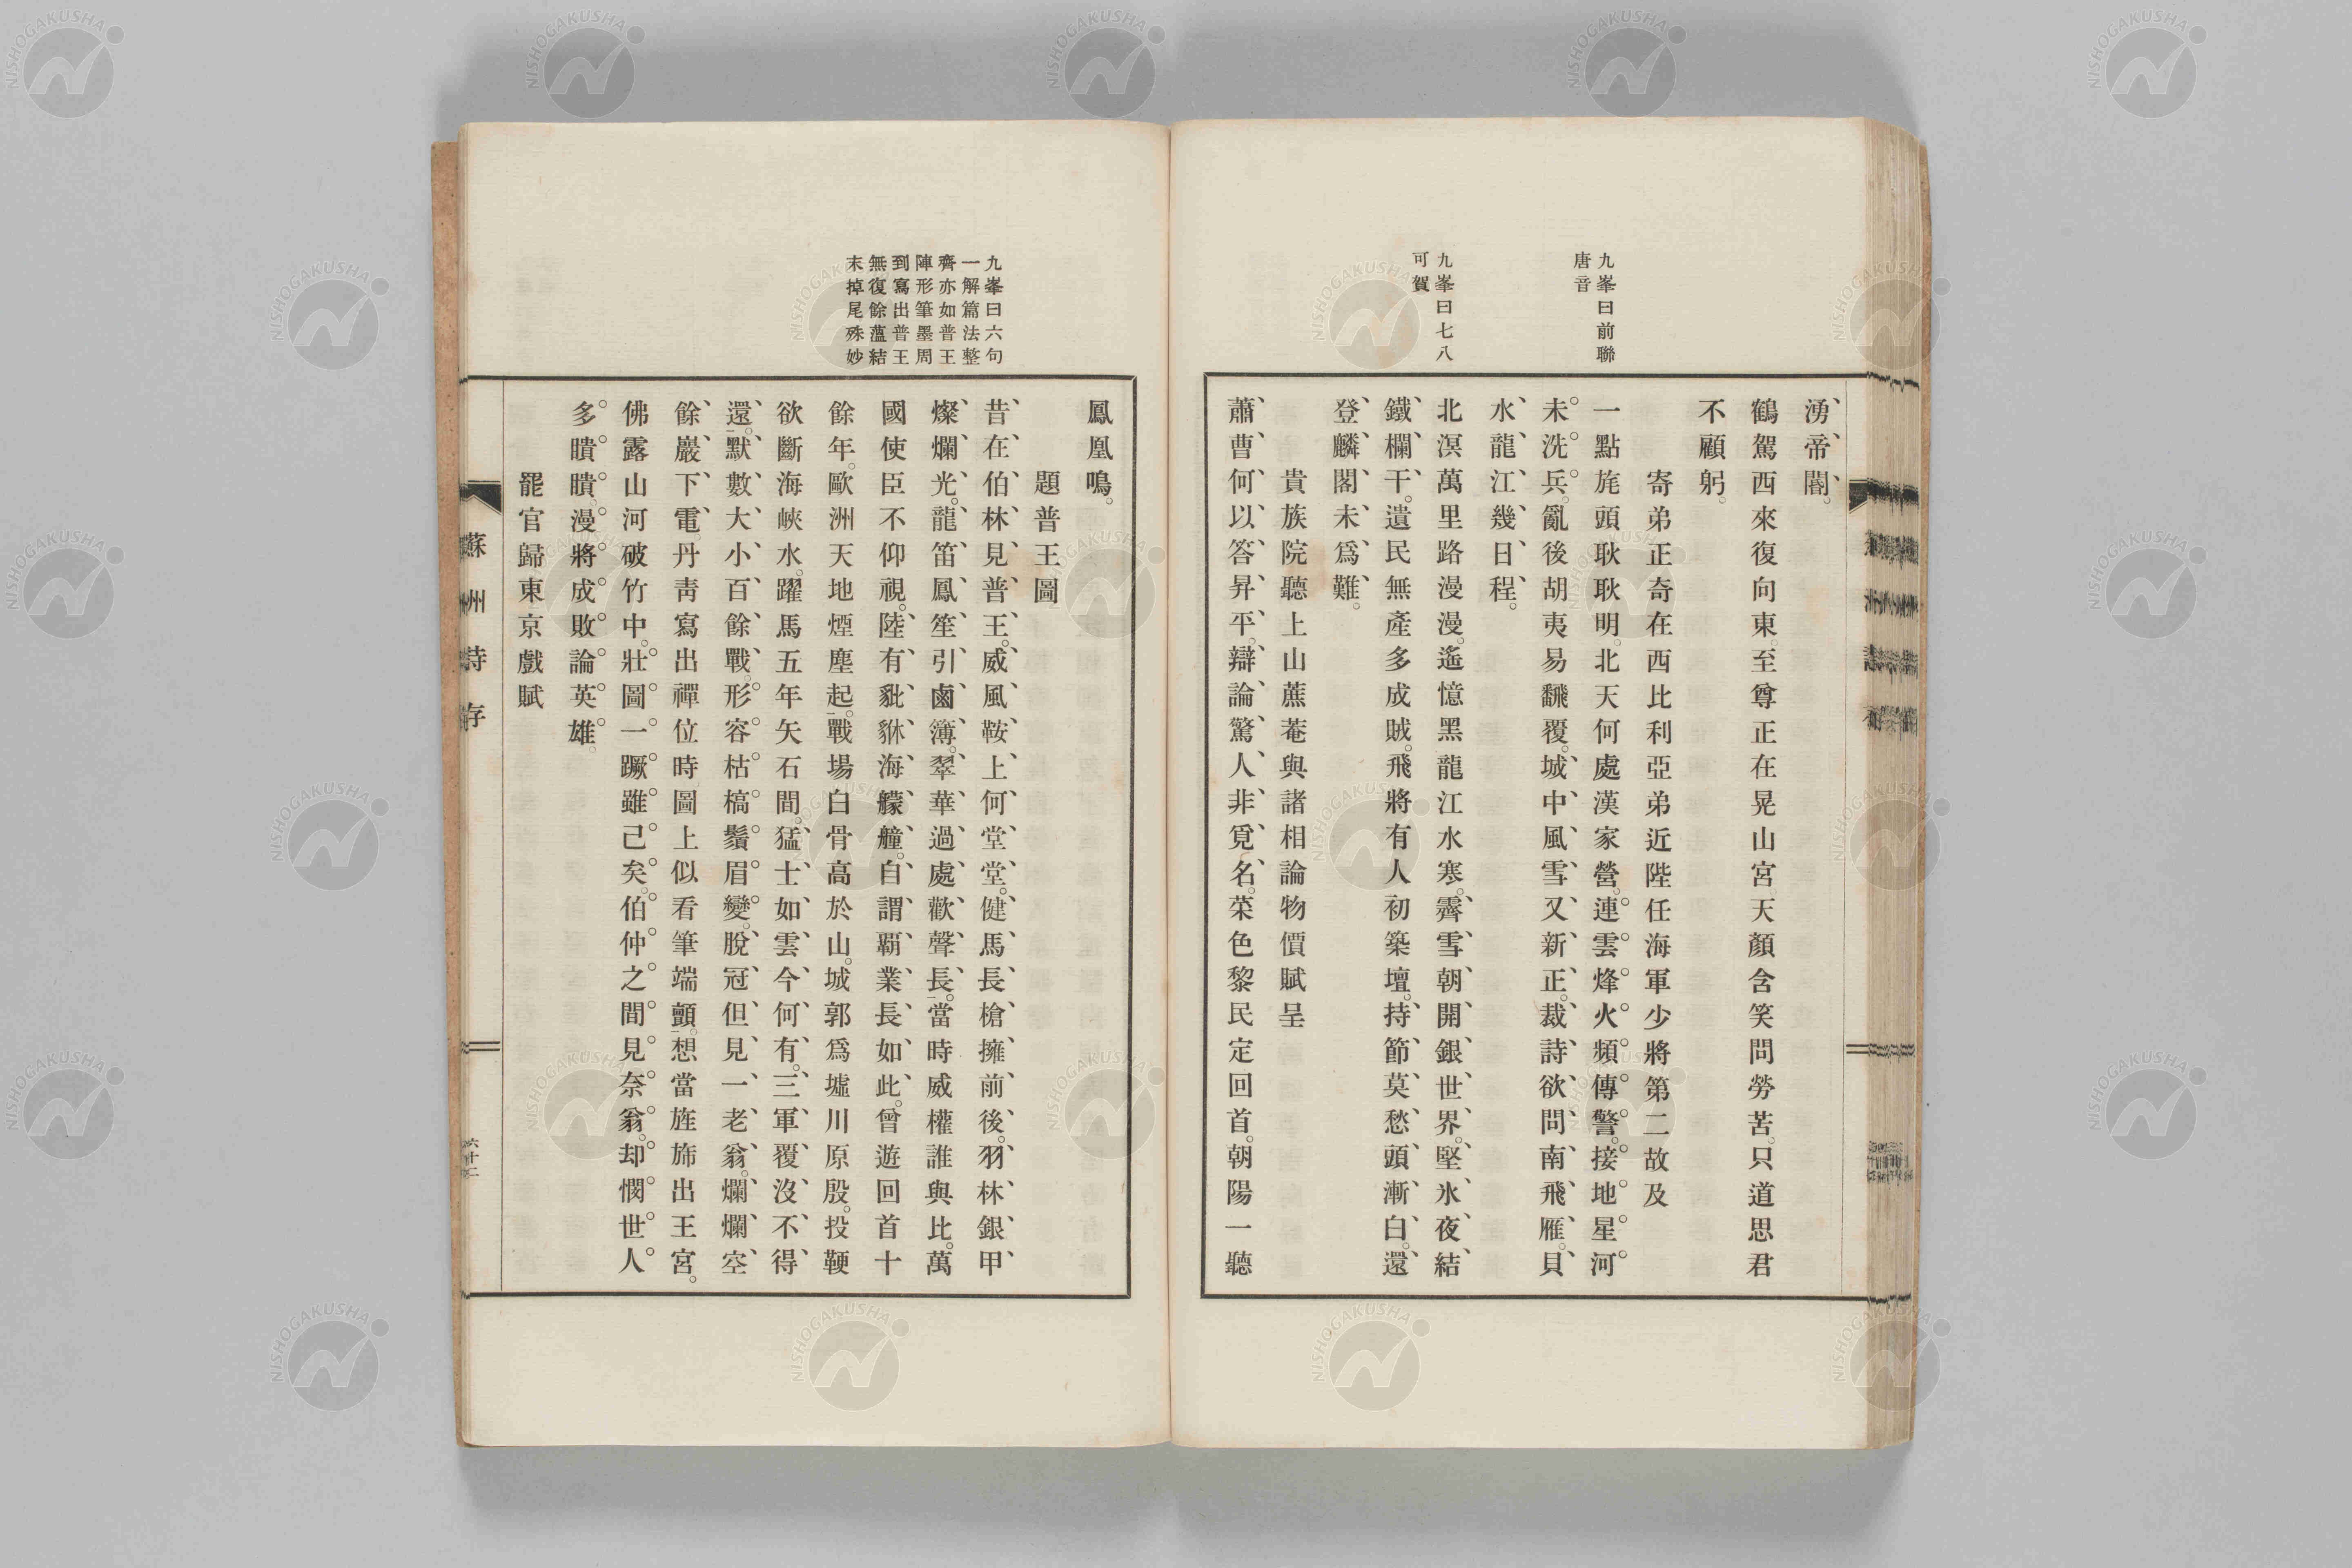 湧帝閽。
鶴駕西來復向東。至尊正在晃山宮。天顏含笑問勞苦。只道思君
不顧躬。
寄弟正奇在西比利亞弟近陞任海軍少將第二故及
一點旄頭耿耿明。北天何處漢家營。連雲烽火頻傳警。接地星河
未洗兵。亂後胡夷易飜覆。城中風雪又新正。裁詩欲問南飛雁。貝
水龍江幾日程。
北溟萬里路漫漫。遙憶黑龍江水寒。霽雪朝開銀世界。堅氷夜結
鐵欄干。遺民無產多成賊。飛將有人初築壇。持節莫愁頭漸白。還
登麟閣未爲難。
貴族院聽上山蔗菴與諸相論物價賦呈
蕭曹何以答昇平。辯論驚人非覓名。菜色黎民定回首。朝陽一聽
九峯曰前聯
唐音
九峯曰七八
可賀
鳳凰鳴。
題普王圖
昔在伯林見普王。威風鞍上何堂堂。健馬長槍擁前後。羽林銀甲
燦爛光。龍笛鳳笙引鹵簿。翠華過處歡聲長。當時威權誰與比。萬
國使臣不仰視。陸有貔貅海艨艟。自謂覇業長如此。曾遊回首十
餘年。歐洲天地煙塵起。戰場白骨高於山。城郭爲墟川原殷。投鞕
欲斷海峽水。躍馬五年矢石間。猛士如雲今何有。三軍覆沒不得
還。默數大小百餘戰。形容枯槁鬚眉變。脫冠但見一老翁。爛爛空
餘巖下電。丹靑寫出禪位時。圖上似看筆端顫。想當旌旆出王宮。
佛露山河破竹中。壯圖一蹶雖已矣。伯仲之間見奈翁。却憫世人
多聵聵。漫將成敗論英雄。
罷官歸東京戲賦
九峯曰六句
一解篇法整
齊亦如普王
陣形筆墨周
到寫出普王
無復餘薀結
末掉尾殊妙
蘇州詩存
六十二
NISHOGAKUSHA